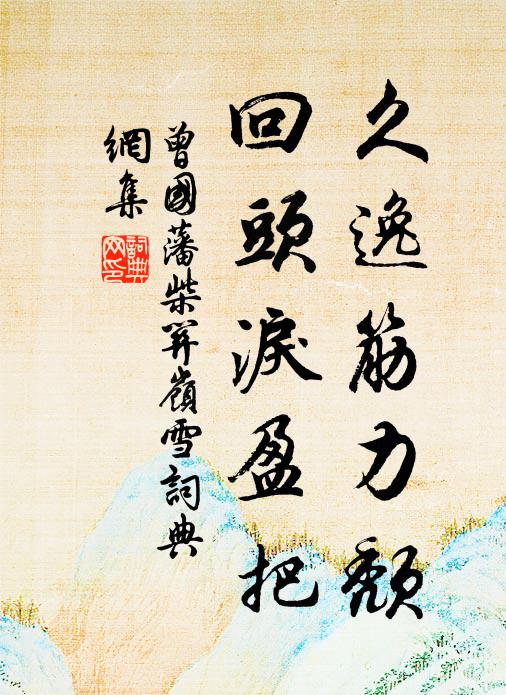 久逸筋力頹
回頭淚盈把
曾國藩柴關嶺雪詞典
網集
詞典
网印